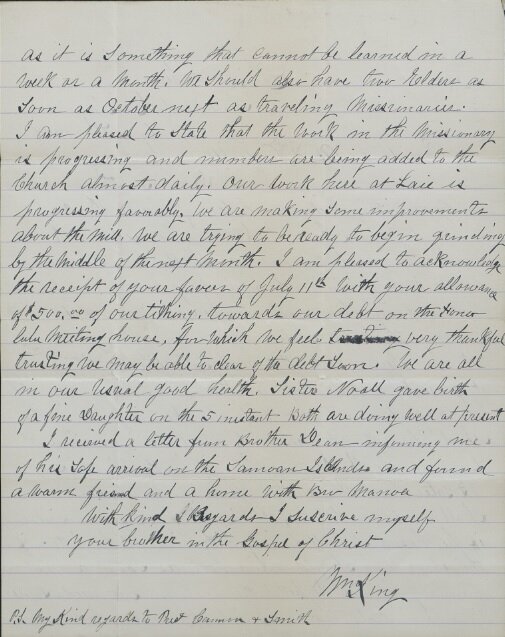 as it is something that cannot be learned in a
week or a month. We should also have two Elders as
soon as October next as traveling Missionaries.
I am pleased to state that the work in the Missionary
is progressing and numbers are being added to the
Church almost daily. Our work here at Laie is
progressing favorably. We are making some improvements
about the Mill. We are trying to be ready to begin grinding
by the Middle of the next Month. I am pleased to acknowledge
the receipt of your favor of July 11th with your allowance
of $500.00 of our tithing, towards our debt on the Hono
lulu Meeting house, for which we feel very thankful
trusting we may be able to clear of the debt soon. We are all
in our usual good health. Sister Noall gave birth
of a fine Daughter on the 5 instant Both are doing well at present
I received a letter from Brother Dean informing me
of his safe arrival on the Samoan Islands and found
a warm friend and a home with Bro Manoa
With Kind Regards I suscrive myself
your brother in the Gospel of Christ
Wm King
P.S. My Kind regards to Prest Cannon & Smith